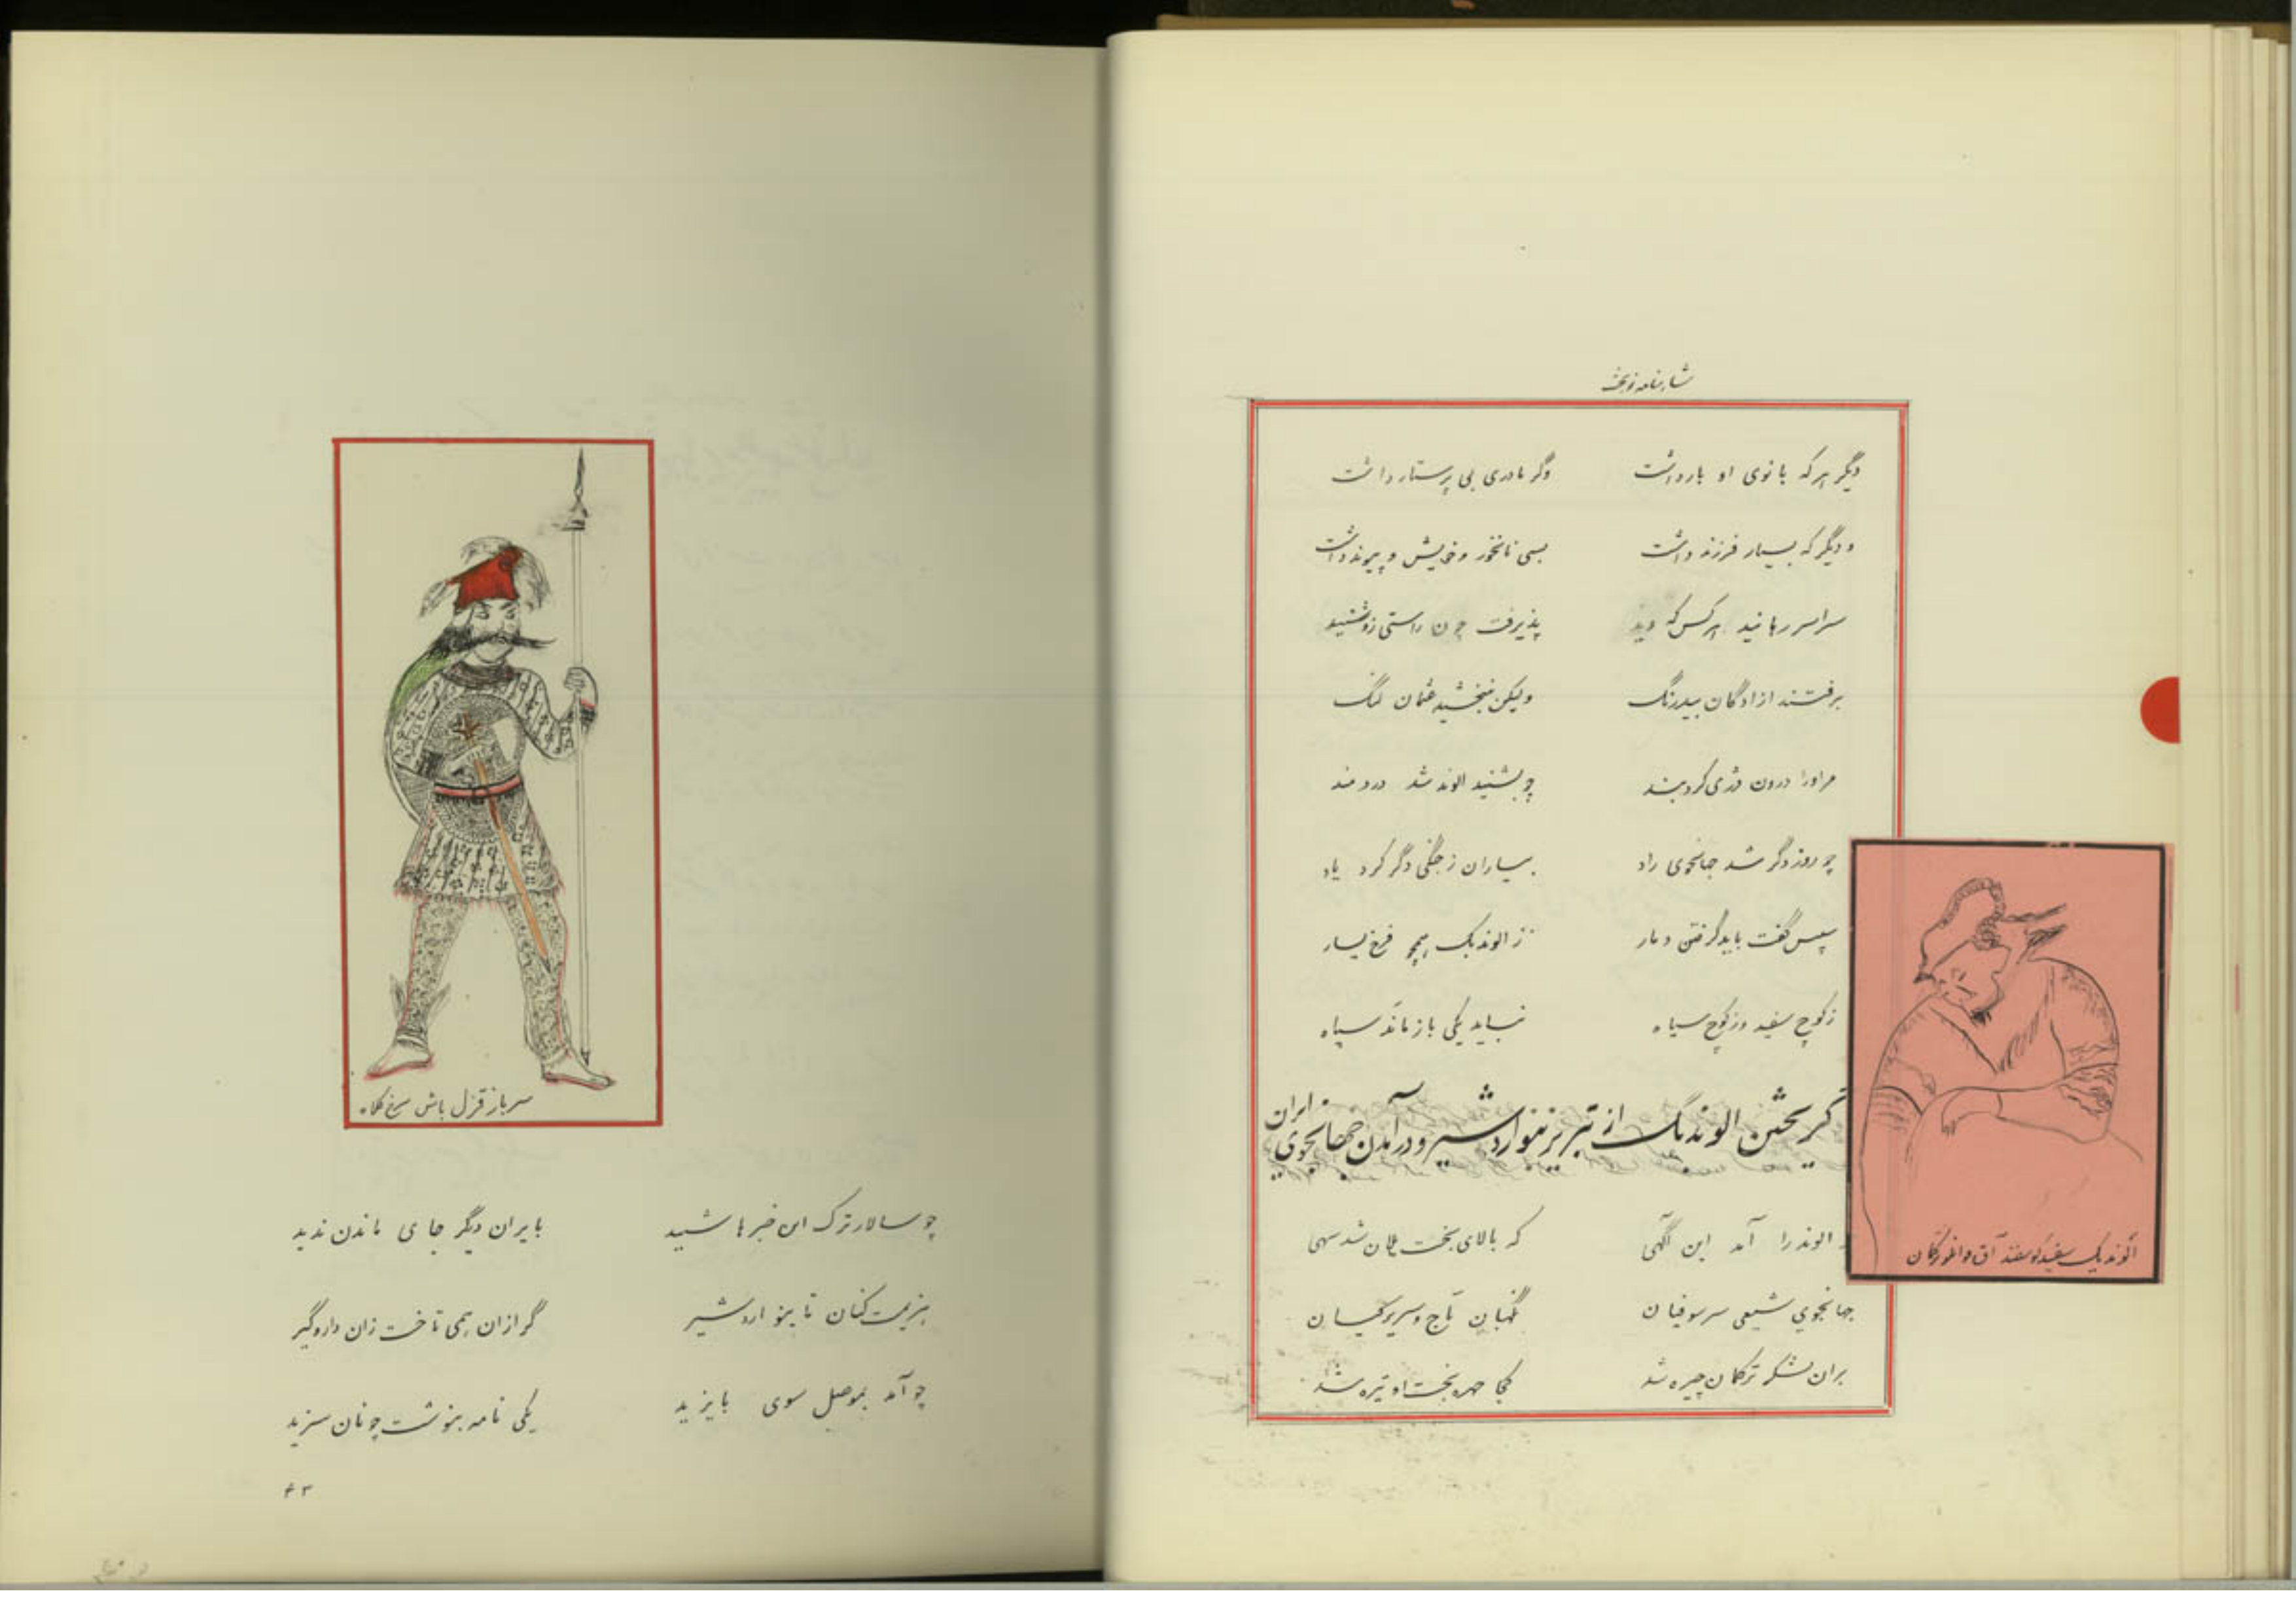 شاهنامه نوبخت
دیگر هر که بانوی او بار داشت وگر مادری بی پرستار داشت
و دیگر که بسیار فرزند داشت بسی نانخور و خویش و پیوند داشت
سراسر رهانید هر کس که دید پذیرفت چون راستی زو شنید
برفتند ازادگان بیدرنگ ولیکن نبخشید عثمان لنگ
مر اورا درون دژی کرد بند چو بشنید الوند شد دردمند
چو روز دگر شد جهانجوی راد بیاران ز جنگی دگر کرد یاد
سپس گفت باید گرفتن دمار ز الوند بک همچو فرخ یسار
ز کوچ سفید وز کوچ سیاه نباید یکی باز ماند سپاه
گریختن الوند بک از تبریز بنوارد شیر و درآمدن جهانجوی ایران
الوند را آمد این آگهی که بالای بخت یلان شد سهی
جهانجوی شیعی سر سوفیان نگهبان تاج و سریر کیان
بران لشکر ترکمان چیره شد کجا چهره بخت او تیره شد
الوند بیک سفید گوسفند آق قوانلو ترکمان
سرباز قزل باش سرخ کلاه
چو سالار ترک این خبرها شنید بایران دیگر جای ماندن ندید
هزیمت کنان تا بنو اردشیر گرازان همی تاخت زان داروگیر
چو آمد بموصل سوی بایزید یکی نامه بنوشت چونان سزید
۴۳